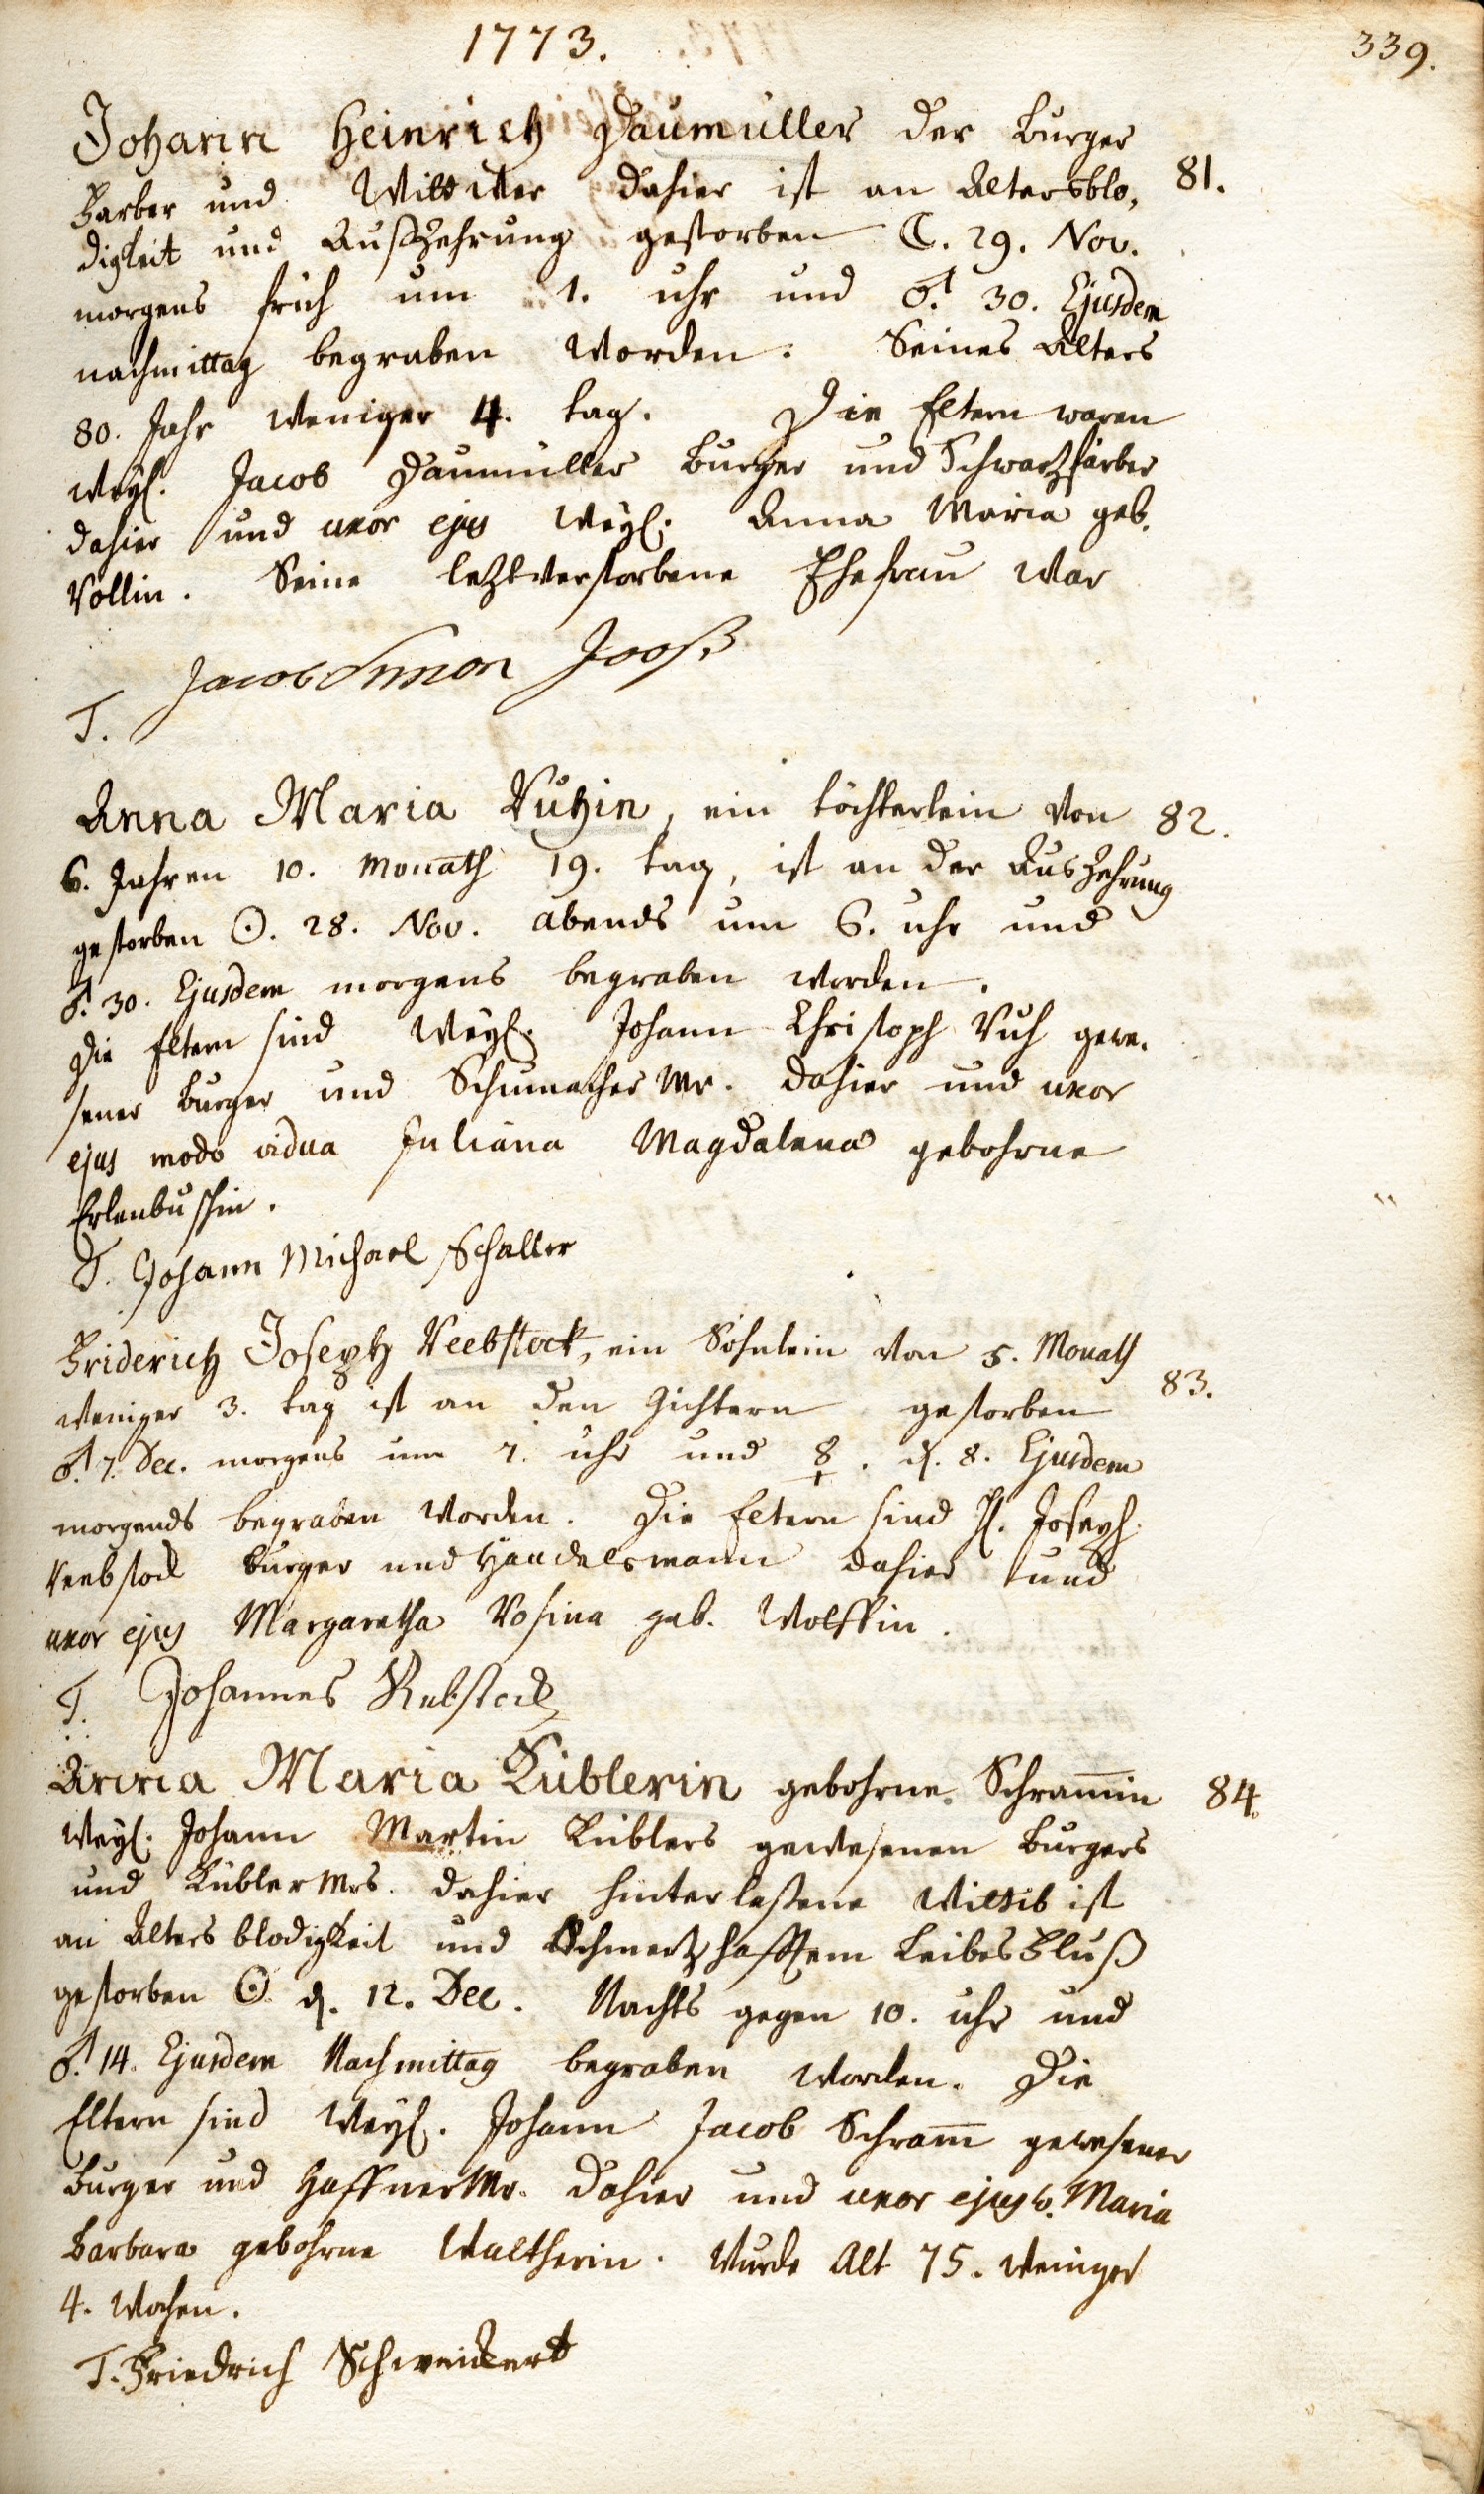 1773.
339.
Johann Heinrich Daumüller der Burger
Farber und Wittwer dahier ist an Altersblo,
81.
digkeit und Auszehrung gestorben ☾. 29. Nov.
morgens früh um 1. uhr und ♂. 30. Ejusdem
nachmittag begraben worden. Seines Alters
80. Jahr weniger 4. tag. Die Eltern waren
weyl. Jacob Daumüller Burger und Schwarzfärber
dahier und uxor ejus weyl. Anna Maria geb.
Rollin. Seine letztverstorbene Ehefrau war
T. Jacob Simon Jooß
Anna Maria Ruhin, ein töchterlein von
82.
6. Jahren 10. Monath 19. tag, ist an der Auszehrung
gestorben ☉. 28. Nov. abends um 6. uhr und
♂. 30. Ejusdem morgens begraben worden.
Die Eltern sind weyl. Johann Christoph Ruh gewe.
sener Burger und Schumacher Mr. dahier und uxor
ejus modo vidua Juliana Magdalena gebohrne
Erlenbuschin.
T. Johann Michael Schaller
Friderich Joseph Reebstock, ein Söhnlein von 5. Monath
83.
weniger 3. tag ist an den Gichtern gestorben
♂. 7. Dec. morgens um 7. uhr und ☿. d. 8. Ejusdem
morgends begraben worden. Die Eltern sind H. Joseph
Reebstock burger und Handelsmann dahier und
uxor ejus Margaretha Rosina geb. Wolffin.
T. Johannes Rebstock
Anna Maria Küblerin gebohrne Schram̄in
84.
Weyl. Johann Martin Küblers gewesenen Burgers
und Kübler Mrs. dahier hinterlaßene Wittib ist
an Alters blodigkeit und Schmerzhafftem Leibesfluß
gestorben ☉ d. 12. Dec. Nachts gegen 10. uhr und
♂. 14. Ejusdem Nachmittag begraben worden. Die
Eltern sind Weyl. Johann Jacob Schram̄ gewesener
Burger und Haffner Mr. dahier und uxor ejus Maria
Barbara gebohrne Waltherin. Wurde Alt 75. weniger
4. Wochen.
T. Friedrich Schweickert